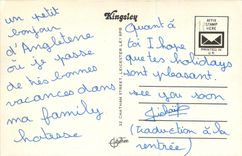 un petit
bonjour
d'Angleterre
où je passe
de très bonnes
vacances dans
ma family
hotesse
Kingsley
32 CHATHAM STREET, LEICESTER LE1 6PB
Quant à
toi I hope
que tes holidays
sont pleasant.
see you soon
(traduction à la
rentrée)
AFFIX
STAMP
HERE
PRINTED IN
U.K.